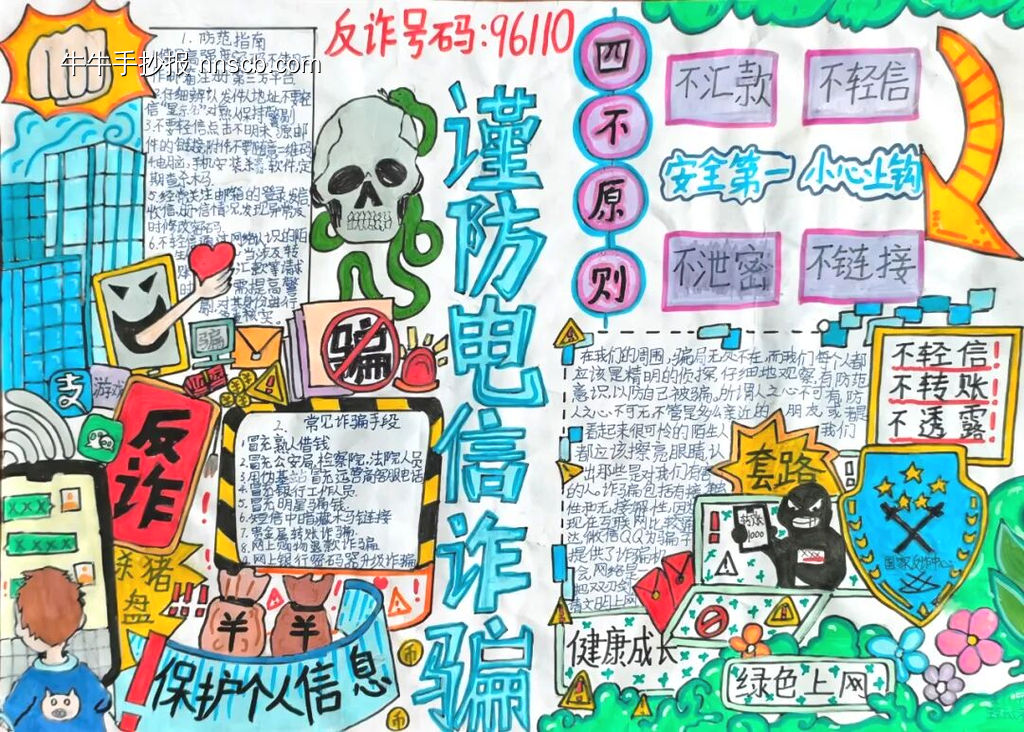 反诈号码:96110
牛牛手抄报 nnscb.com
1. 防范指南
谨防电信诈骗
四不原则
不汇款
不轻信
安全第一
小心上钩
不泄密
不链接
2.仔细辨认发件人地址,不要轻
3.不要轻信点击不明来源邮
件的链接附件不要随意扫二维码
4.电脑、手机安装杀毒软件,定
期查杀木马
5.经常关注邮箱的登录、发信
收信、册信情况发现异常及
时修改密码
汇款等请求
需提高警
对其身份进行
骗
骗
游戏
支
反诈
2. 常见诈骗手段
1.冒充熟人借钱
2.冒充公安局,检察院,法院人员
3.用伪基站冒充运营商客服电话
4.冒充银行工作人员
5.冒充明星骗钱
6.短信中暗藏木马链接
7.贵金属转账诈骗
8.网上购物退款诈骗
9.网上银行密码器升级诈骗
XXX
XXX
杀猪盘
¥
¥
保护个人信息
币
币
在我们的周围,骗局无处不在,而我们每个人都
应该是精明的侦探,仔细地观察,有防范
意识,以防自己被骗,所谓人之心不可有,防
人之心不可无不管是多么亲近的朋友,或是
看起来很可怜的陌生人,我们
都应该擦亮眼睛,认
出那些是对我们有危险
的人,诈骗包括有接触
性和无接触性,因为
现在互联网比较发
达,微信QQ为骗子
提供了诈骗机
会,网络是一
把双刃剑
请文明上网
不轻信!
不转账!
不透露!
套路
转账
1000
XXX
国家反诈中心
健康成长
绿色上网